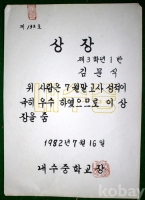 상장
제3학년 1반
김문식
위 사람은 7월말고사 성적이
극히 우수 하였으므로 이 상
장을 줌
1982년 7월 16일
내수중학교장
kobay